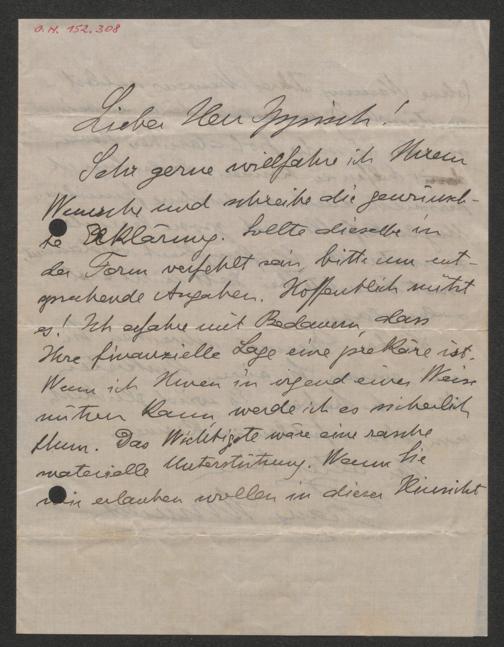 O.N. 152.308
Lieber Herr !
Sehr gerne willfahre ich Ihrem
Wunsche und schreibe die gewünsch-
te Erklärung. Sollte dieselbe in
der Form verfehlt sein, bitte um ent-
sprechende Angaben. Hoffentlich nützt
es! Ich erfahre mit Bedauern, dass
Ihre finanzielle Lage eine prekäre ist.
Wenn ich Ihnen in irgend einer Weise
nützen kann, werde ich es sicherlich
thun. Das Wichtigste wäre eine rasche
materielle Unterstützung. Wenn Sie
mir erlauben wollen in dieser Hinsicht